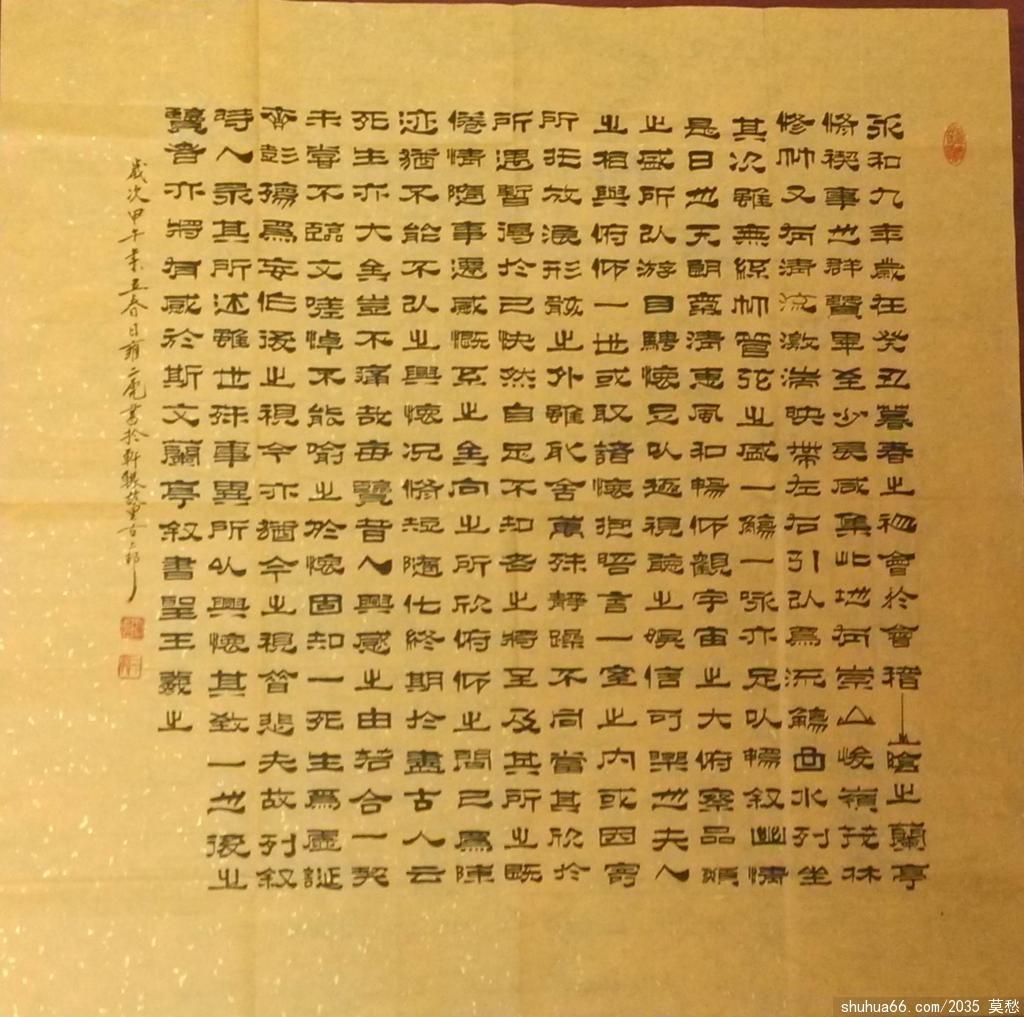 永和九年歲在癸丑暮春之初會於會稽山陰之蘭亭
脩禊事也群賢畢至少長咸集此地有崇山峻嶺茂林
修竹又有清流激湍映帶左右引以爲流觴曲水列坐
其次雖無絲竹管弦之盛一觴一咏亦足以暢叙幽情
是日也天朗氣清惠風和暢仰觀宇宙之大俯察品類
之盛所以游目騁懷足以極視聽之娛信可樂也夫人
之相與俯仰一世或取諸懷抱晤言一室之內或因寄
所託放浪形骸之外雖取舍萬殊靜躁不同當其欣於
所遇暫得於己快然自足不知老之將至及其所之既
倦情隨事遷感慨系之矣向之所欣俯仰之間已爲陳
迹猶不能不以之興懷況脩短隨化終期於盡古人云
死生亦大矣豈不痛哉每覽昔人興感之由若合一契
未嘗不臨文嗟悼不能喻之於懷固知一死生爲虛誕
齊彭殤爲妄作後之視今亦猶今之視昔悲夫故列叙
時人录其所述雖世殊事異所以興懷其致一也後之
覽者亦將有感於斯文蘭亭叙書聖王羲之
歲次甲午年孟春日雍亮書於軒
shuhua66.com/2035 莫愁